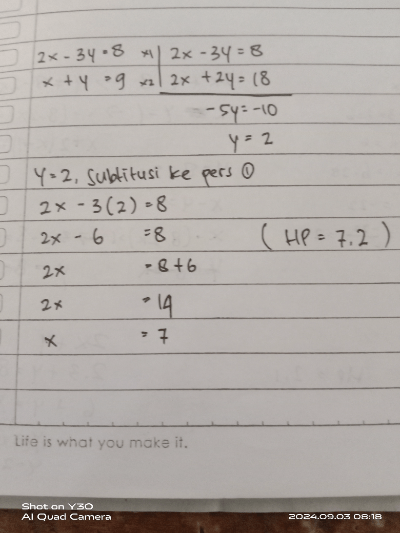 2x - 3y = 8 x1 | 2x - 3y = 8
x + y = 9 x2 | 2x + 2y = 18
-5y = -10
y = 2
y = 2, Subtitusi ke pers ①
2x - 3(2) = 8
2x - 6 = 8 ( HP = 7.2 )
2x = 8 + 6
2x = 14
x = 7
Life is what you make it.
Shot on Y30
AI Quad Camera 2024.09.03 08:18